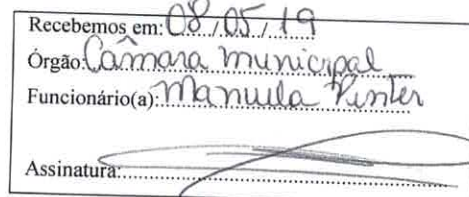 Recebemos em: 08/05/19
Órgão: Câmara municipal
Funcionário(a): Manuela
Assinatura: